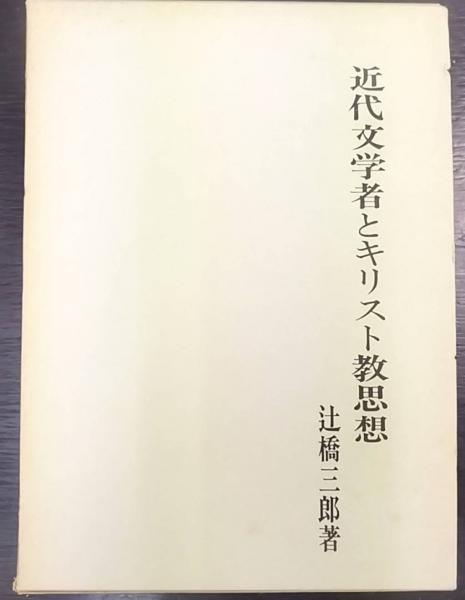 近代文学者とキリスト教思想
辻橋三郎著